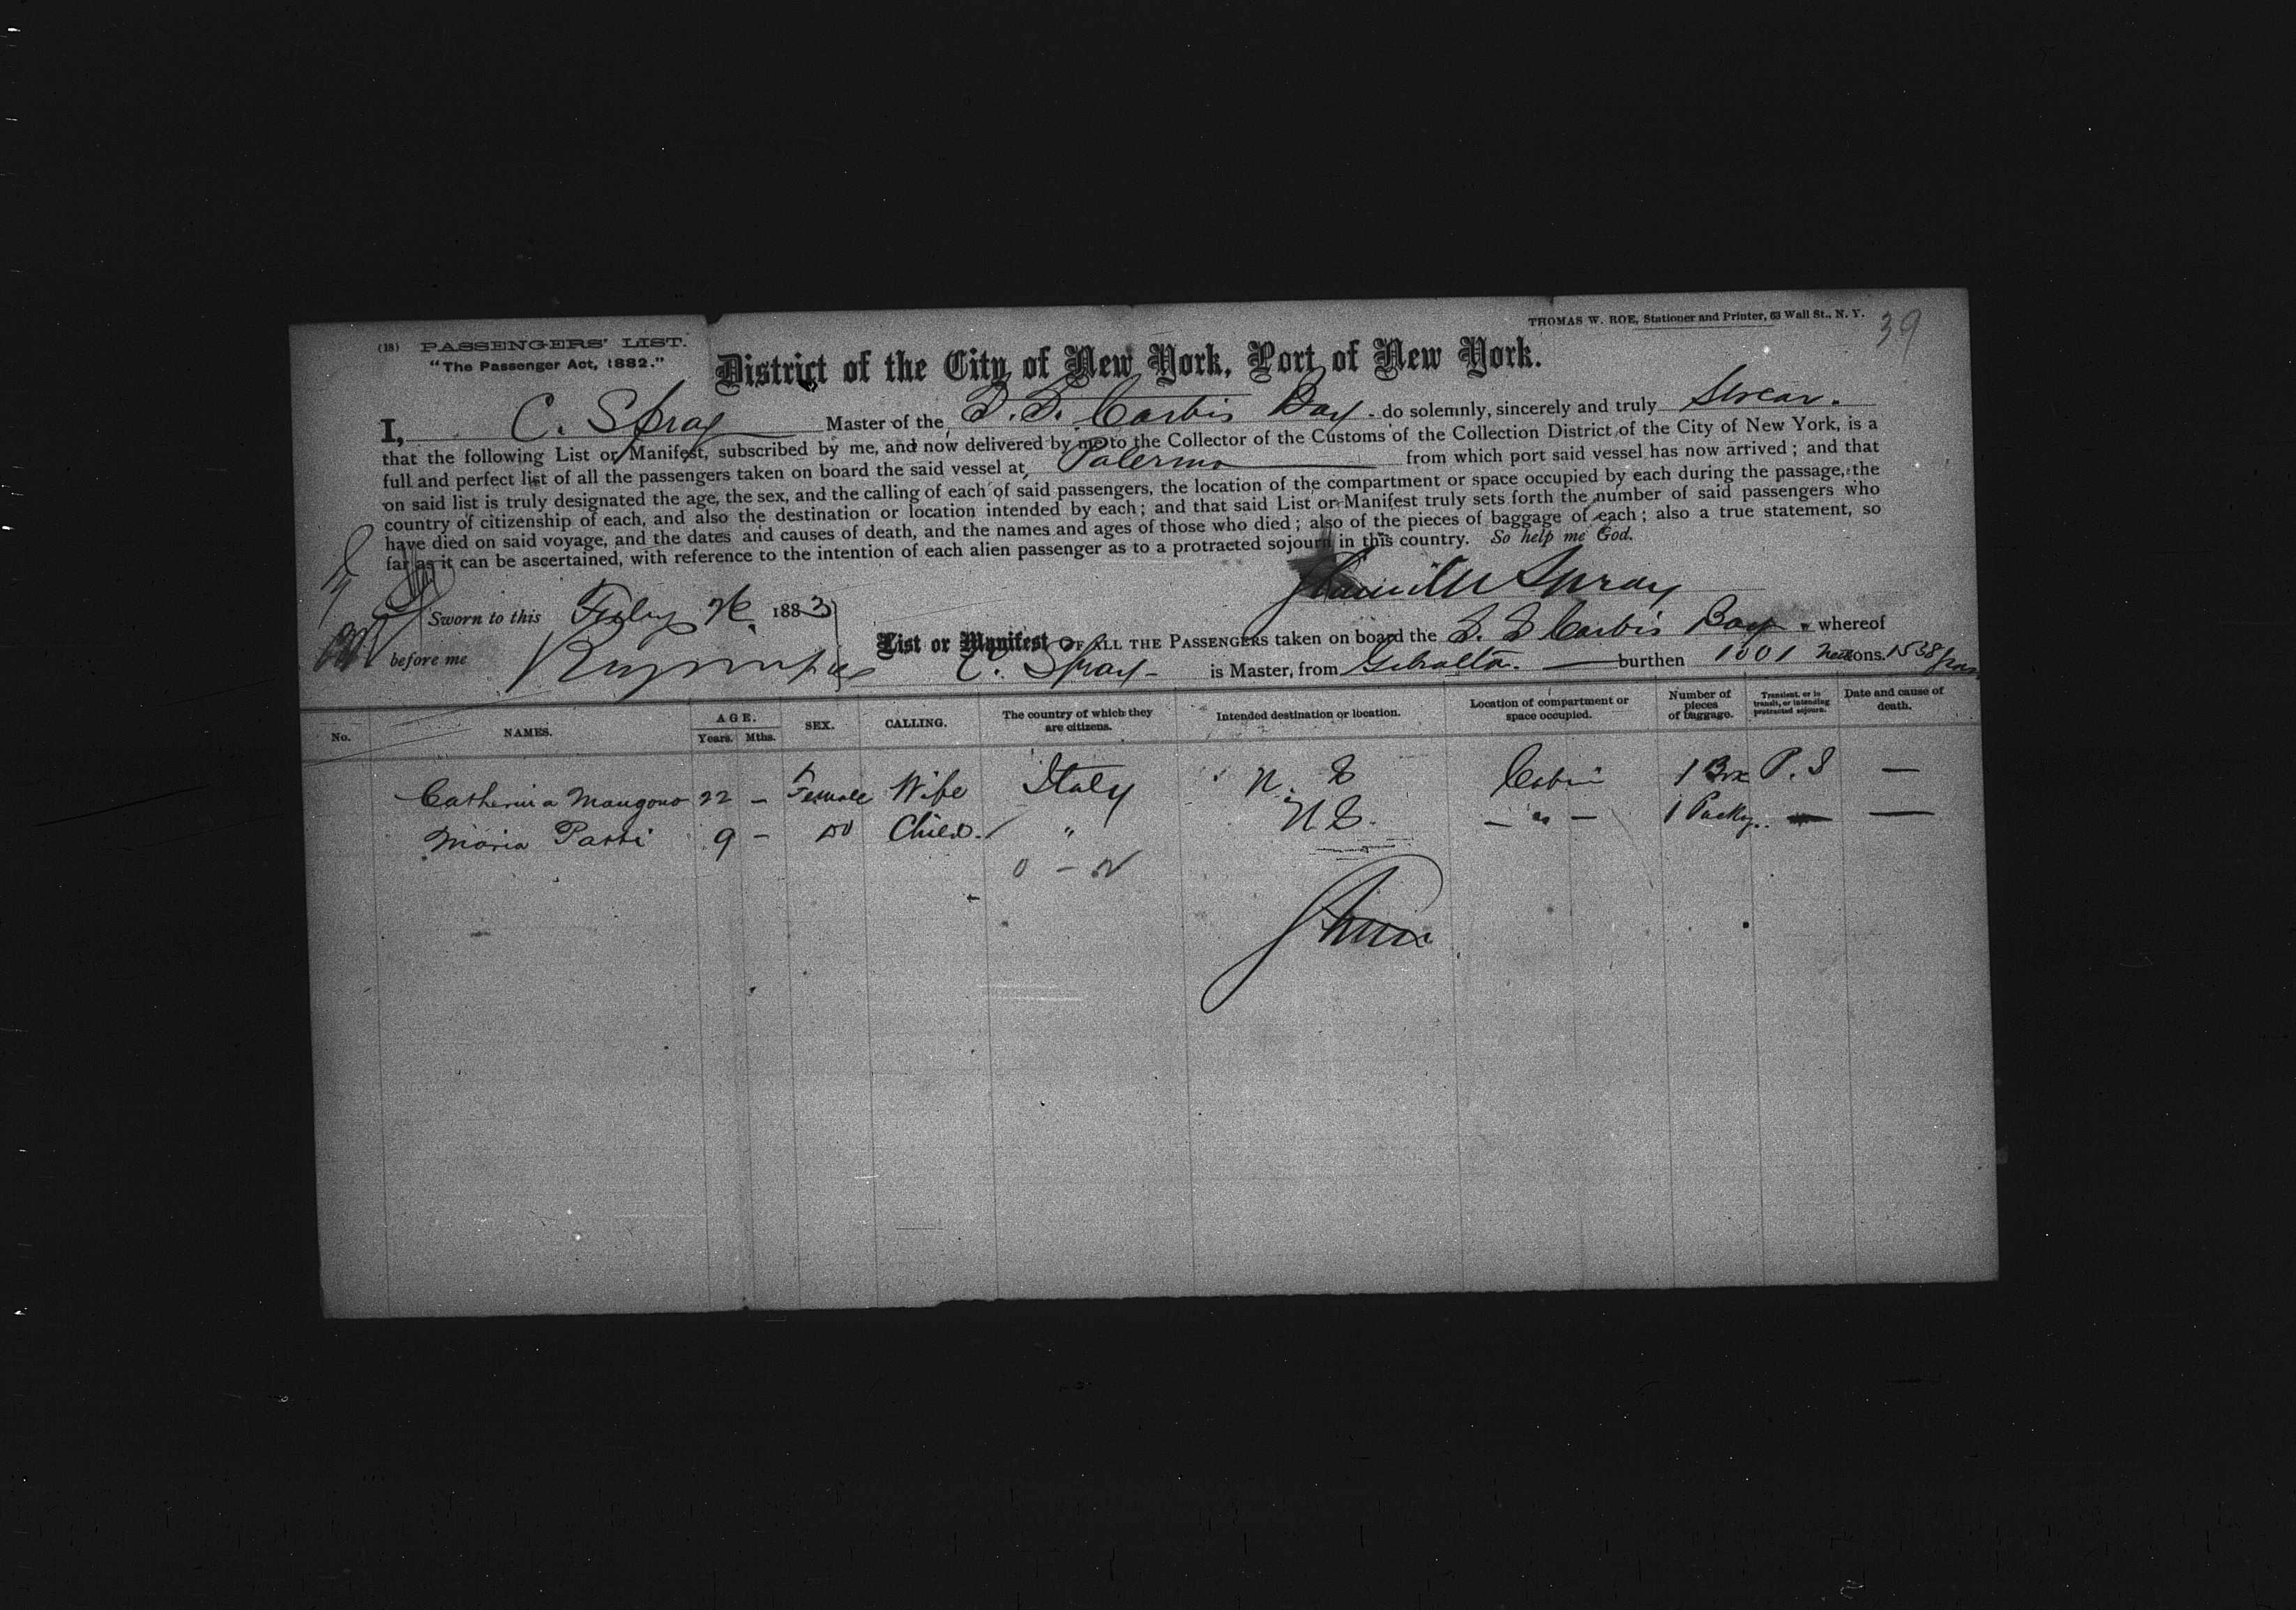 THOMAS W. ROE, Stationer and Printer, 63 Wall St., N. Y. 39
(18) PASSENGERS' LIST.
"The Passenger Act, 1882."
District of the City of New York, Port of New York.
I, C. Spray Master of the S.S. Carbis Bay do solemnly, sincerely and truly Swear.
that the following List or Manifest, subscribed by me, and now delivered by me to the Collector of the Customs of the Collection District of the City of New York, is a
full and perfect list of all the passengers taken on board the said vessel at Palermo from which port said vessel has now arrived; and that
on said list is truly designated the age, the sex, and the calling of each of said passengers, the location of the compartment or space occupied by each during the passage, the
country of citizenship of each, and also the destination or location intended by each; and that said List or Manifest truly sets forth the number of said passengers who
have died on said voyage, and the dates and causes of death, and the names and ages of those who died; also of the pieces of baggage of each; also a true statement, so
far as it can be ascertained, with reference to the intention of each alien passenger as to a protracted sojourn in this country. So help me God.
Spray
Sworn to this 1883
before me
List or Manifest OF ALL THE PASSENGERS taken on board the S. S Carbis Bay whereof
C. Spray is Master, from Gibralta. burthen 1001 tons. 1538
No. NAMES. AGE. Years. Mths. SEX. CALLING. The country of which they are citizens. Intended destination or location. Location of compartment or space occupied. Number of pieces of baggage. Transient, or in transit, or intending protracted sojourn. Date and cause of death.
Catherina Mangono 22 – Female Wife Italy Cabin 1 Box P. S —
Maria 9 – Do Child. " — " — 1 Packg. — —